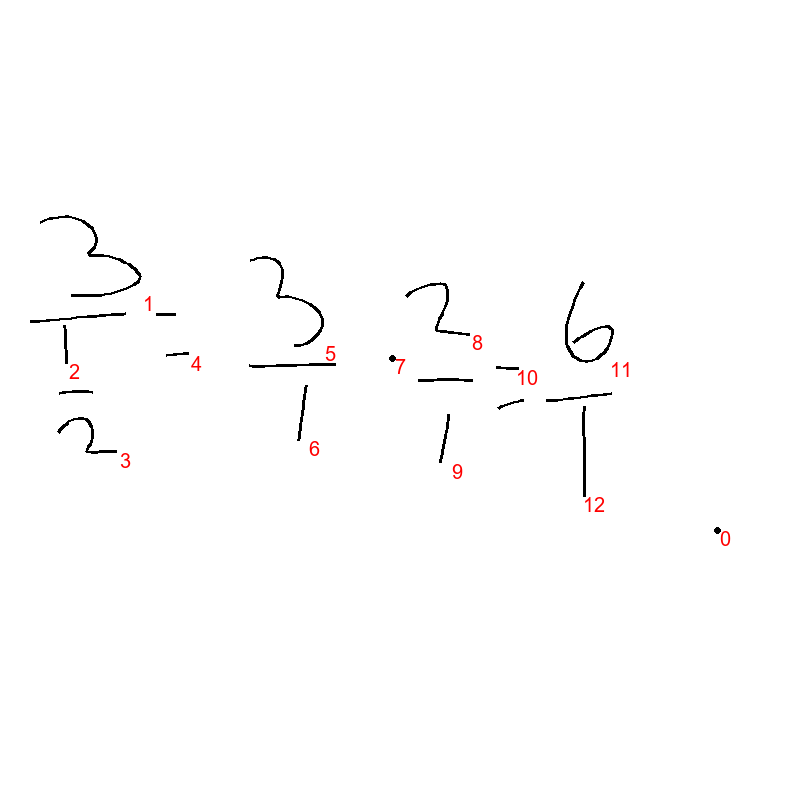 3/(1/2) = 3/1 · 2/1 = 6/1
1
2
3
4
5
6
7
8
9
10
11
12
0